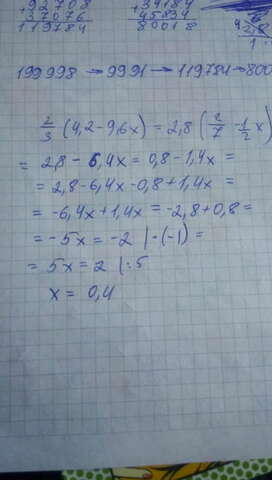 +92708 +34184
37076 45834
119784 80018
199998 → 9991 → 119784 → 800
2/3 (4,2 - 9,6x) = 2,8 (2/7 - 1/2 x)
= 2,8 - 6,4x = 0,8 - 1,4x =
= 2,8 - 6,4x - 0,8 + 1,4x =
= -6,4x + 1,4x = -2,8 + 0,8 =
= -5x = -2 | ·(-1) =
= 5x = 2 | :5
x = 0,4